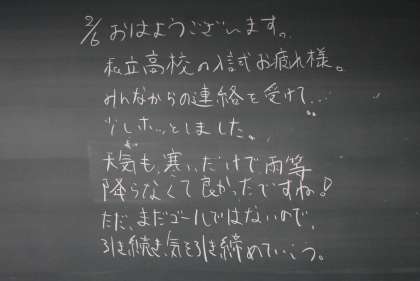 2/6 おはようございます。
私立高校の入試お疲れ様。
みんなからの連絡を受けて...
少しホッとしました。
天気も、寒いだけで、雨等
降らなくて良かったですね!
ただ、まだゴールではないので、
引き続き、気を引き締めていこう。